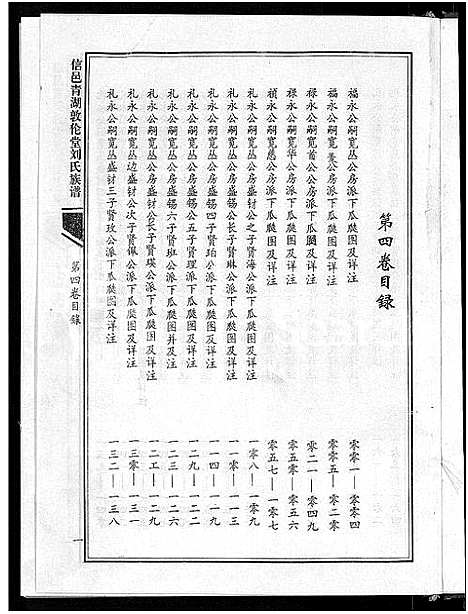 第四卷目録
福永公嗣寬 公房派下瓜瓞图及详注 零零一—零零四
福永公嗣寬 公房派下瓜瓞图及详注 零零五—零二零
禄永公嗣寬 公房派下瓜瓞图及详注 零二一—零四九
禄永公嗣寬华公房派下瓜瓞图及详注 零五零—零五六
祯永公嗣寬慈公房派下瓜瓞图及详注 零五七—一零七
礼永公嗣寬丛公房盛 公之子贤海公派下瓜瓞图及详注 一零八—一零九
礼永公嗣寬丛公房盛锡公长子贤琳公派下瓜瓞图及详注 一一零—一一三
礼永公嗣寬丛公房盛锡四子贤珀公派下瓜瓞图及详注 一一四—一一七
礼永公嗣寬丛公房盛锡公五子贤理派下瓜瓞图及详注 一一 —一二二
礼永公嗣寬丛公房盛锡六子贤班公派下瓜瓞图并及注 一二三—一二六
礼永公嗣寬丛公房盛 公长子贤瑛公派下瓜瓞图及详注 一二 —一二九
礼永公嗣寬丛 盛 公次子贤 公派下瓜瓞图及详注 一三零—一三一
礼永公嗣寬丛盛 三子贤玫公派下瓜瓞图及详注 一三二—一三八
信邑青湖敦伦堂刘氏族谱
第四卷目錄
一